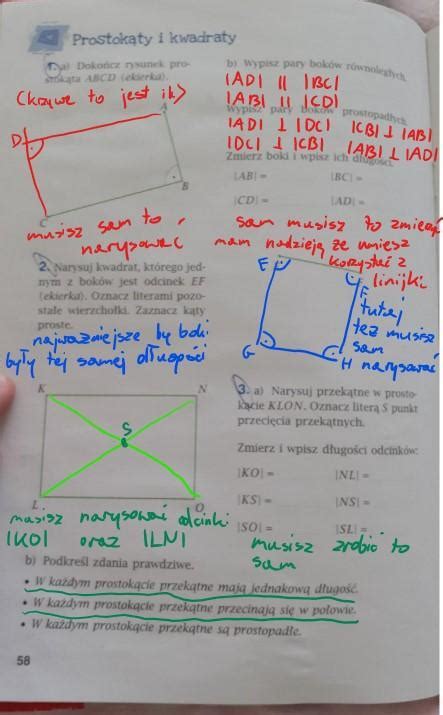 Prostokąty i kwadraty
1. a) Dokończ rysunek pro-
stokąta ABCD (ekierką).
(krzywe to jest ik)
A
D
B
C
musisz sam to
narysować
b) Wypisz pary boków równoległych.
|AD| || |BC|
|AB| || |CD|
Wypisz pary boków prostopadłych.
|AD| ⊥ |DC| |CB| ⊥ |AB|
|DC| ⊥ |CB| |AB| ⊥ |AD|
Zmierz boki i wpisz ich długości.
|AB| = |BC| =
|CD| = |AD| =
sam musisz to zmierzyć
mam nadzieją że umiesz
korzystać z
linijki
2. Narysuj kwadrat, którego jed-
nym z boków jest odcinek EF
(ekierka). Oznacz literami pozo-
stałe wierzchołki. Zaznacz kąty
proste.
najważniejsze by boki
były tej samej długości
E
F
G
H
tutaj
też musisz
sam
narysować
K N
S
L O
musisz narysować odcinki
|KO| oraz |LN|
3. a) Narysuj przekątne w prosto-
kącie KLON. Oznacz literą S punkt
przecięcia przekątnych.
Zmierz i wpisz długości odcinków:
|KO| = |NL| =
|KS| = |NS| =
|SO| = |SL| =
musisz zrobić to
sam
b) Podkreśl zdania prawdziwe.
• W każdym prostokącie przekątne mają jednakową długość.
• W każdym prostokącie przekątne przecinają się w połowie.
• W każdym prostokącie przekątne są prostopadłe.
58